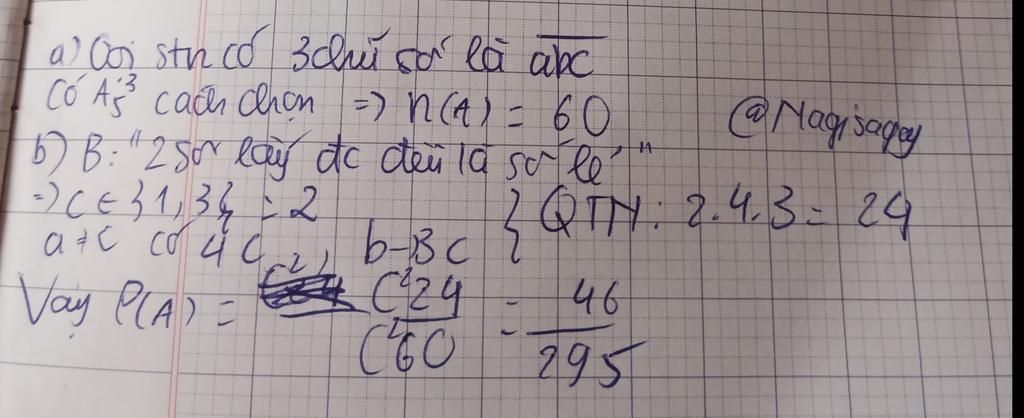 a) Gọi stn có 3 chữ số là abc
Có A₅³ cách chọn => n(A) = 60
@Nagisagay
b) B: "2 số lấy đc đều là số lẻ"
=> c ∈ {1,3} = 2 } QTN: 2.4.3 = 24
a ≠ c có 4 C b-3c
Vậy P(A) = C²24 / C²60 = 46 / 295